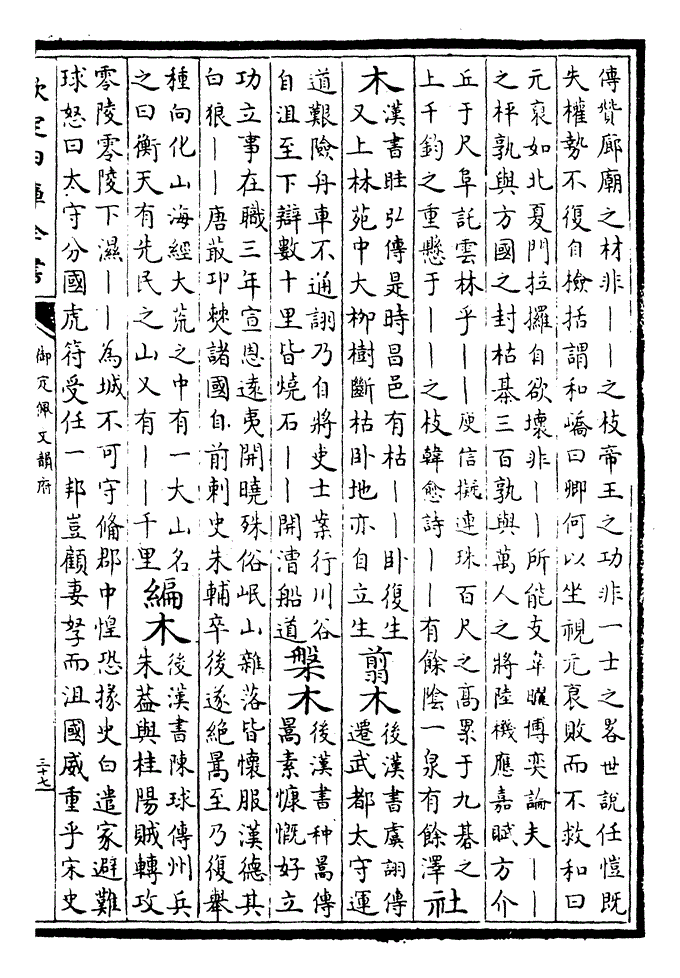 傳贊廊廟之材非丨丨之枝帝王之功非一士之畧世說任愷既
失權勢不復自檢括謂和嶠曰卿何以坐視元裒敗而不救和曰
元裒如北夏門拉攞自欲壞非丨丨所能支韋曜博奕論夫丨丨
之枰孰與方國之封枯棊三百孰與萬人之將陸機應嘉賦方介
丘于尺阜託雲林乎丨丨庾信擬連珠百尺之高累于九碁之
上千鈞之重懸于丨丨之枝韓愈詩丨丨有餘陰一泉有餘澤
社
木
漢書眭弘傳是時昌邑有枯丨丨卧復生
又上林苑中大柳樹斷枯卧地亦自立生
翦木
後漢書虞詡傳
遷武都太守運
道艱險舟車不通詡乃自將吏士案行川谷
自沮至下辯數十里皆燒石丨丨開漕船道
槃木
後漢書种暠傳
暠素慷慨好立
功立事在職三年宣恩遠夷開曉殊俗岷山雜落皆懷服漢德其
白狼丨丨唐菆卭僰諸國自前刺史朱輔卒後遂絕暠至乃復舉
種向化山海經大荒之中有一大山名
之曰衡天有先民之山又有丨丨千里
編木
後漢書陳球傳州兵
朱葢與桂陽賊轉攻
零陵零陵下濕丨丨為城不可守俻郡中惶恐掾史白遣家避難
球怒曰太守分國虎符受任一邦豈顧妻孥而沮國威重乎宋史
欽定四庫全書
御定佩文韻府
三十七